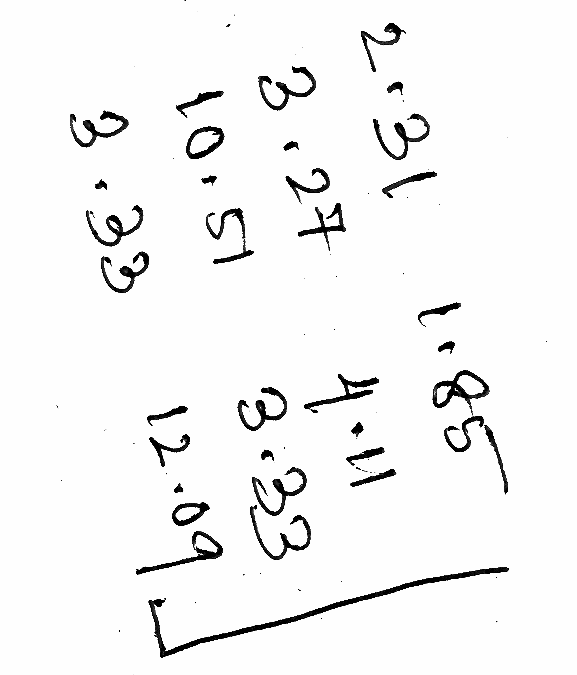 2.31
3.27
10.51
3.33
1.85
4.11
3.33
12.09